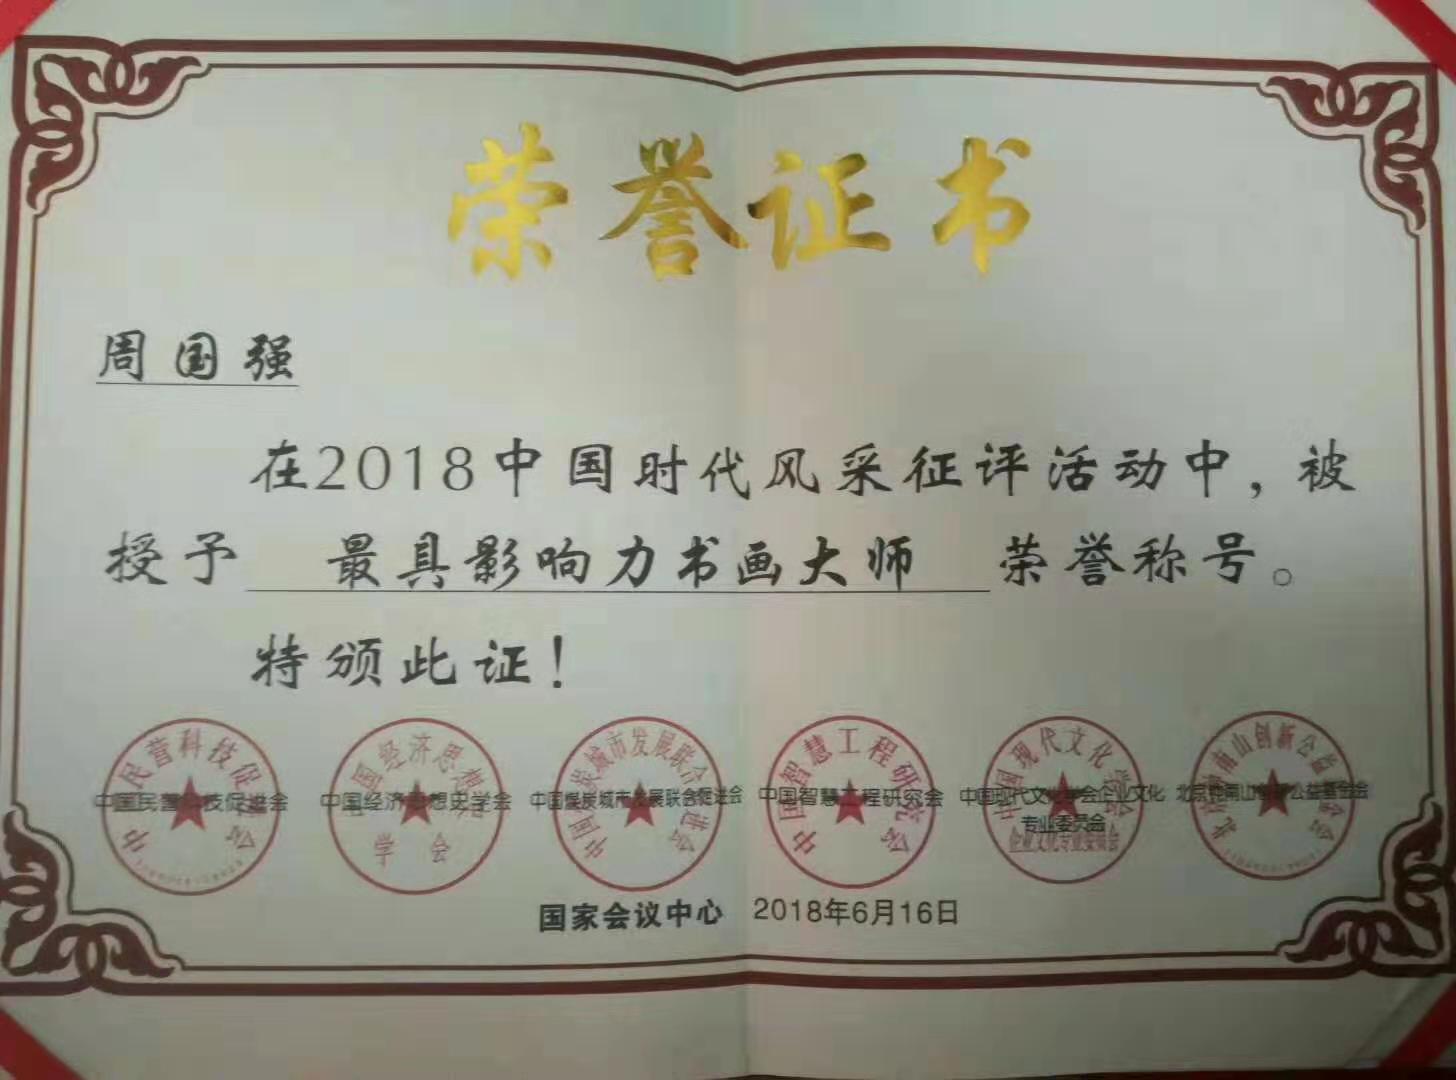 荣誉证书
周国强
在2018中国时代风采征评活动中，被
授予 最具影响力书画大师 荣誉称号。
特颁此证！
中国民营科技促进会
中国经济思想史学会
中国煤炭城市发展联合促进会
中国智慧工程研究会
中国现代文化学会企业文化
专业委员会
北京 南山创新公益基金会
国家会议中心 2018年6月16日